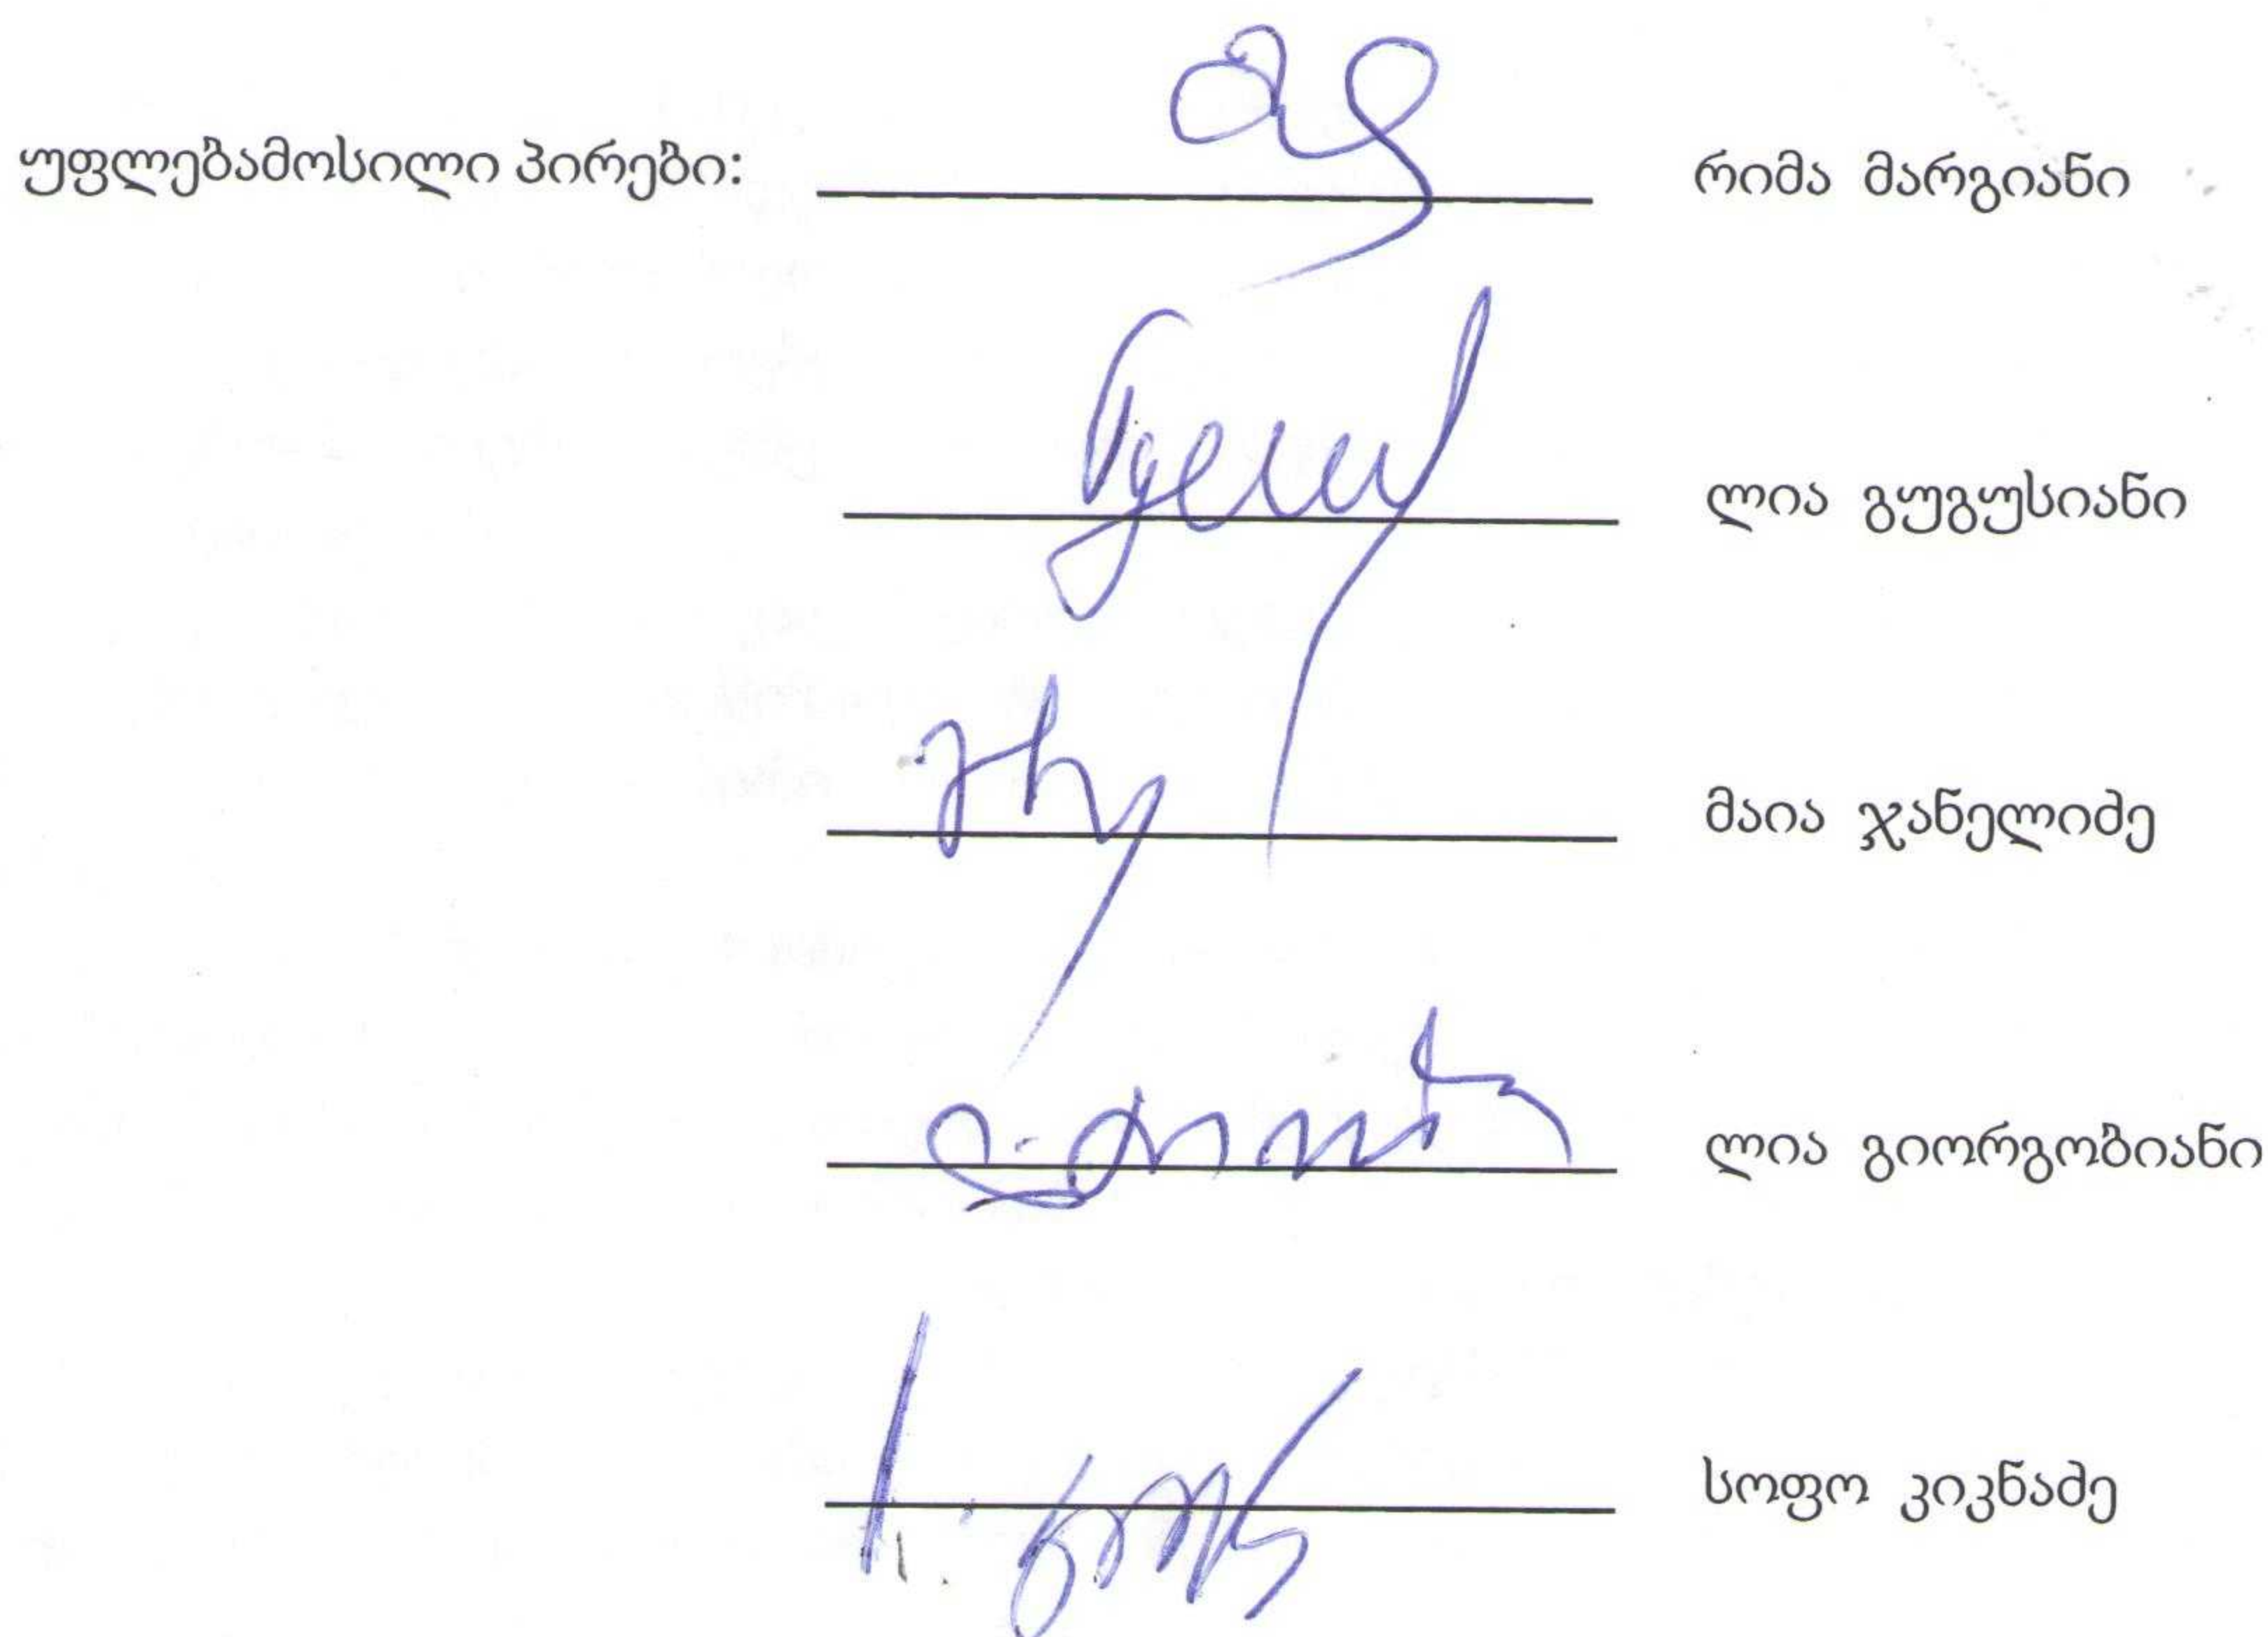 უფლებამოსილი პირები: რიმა მარგიანი
ლია გუგუსიანი
მაია ჯანელიძე
ლია გიორგობიანი
სოფო კიკნაძე